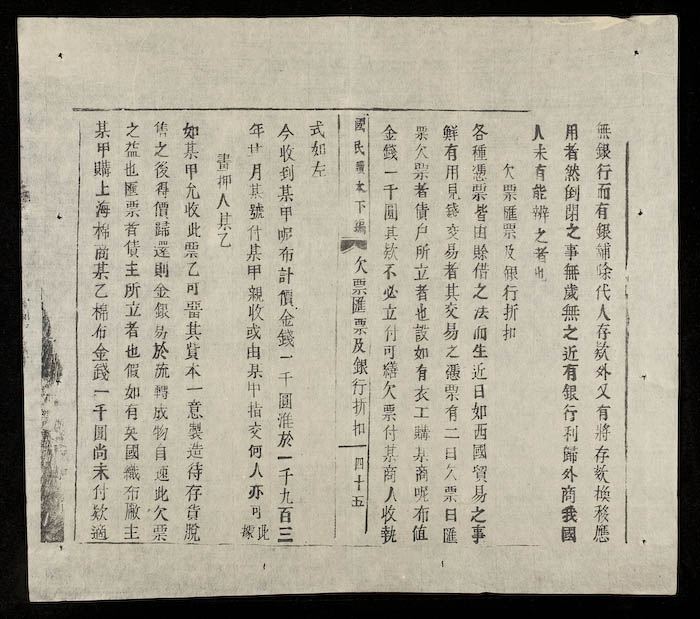 無銀行而有銀鋪除代人存欵外又有將存欵換移應
用者然倒閉之事無歲無之近有銀行利歸外商我國
人未有能辦之者也
欠票匯票及銀行折扣
各種憑票皆由賒借之法而生近日如西國貿易之事
鮮有用見錢交易者其交易之憑票有二曰欠票曰匯
票欠票者債户所立者也設如有衣工購某商呢布值
金錢一千圓其欵不必立付可繕欠票付某商人收執
國民讀本下編 欠票匯票及銀行折扣 四十五
式如左
今收到某甲呢布計價金錢一千圓准於一千九百三
年廿月某號付某甲親收或由某甲指交何人亦可此據
畫押人某乙
如某甲允收此票乙可畱其貲本一意製造待存貨脫
售之後得價歸還則金銀易於流轉成物自速此欠票
之益也匯票者債主所立者也假如有英國織布廠主
某甲購上海棉商某乙棉布金錢一千圓尚未付欵適